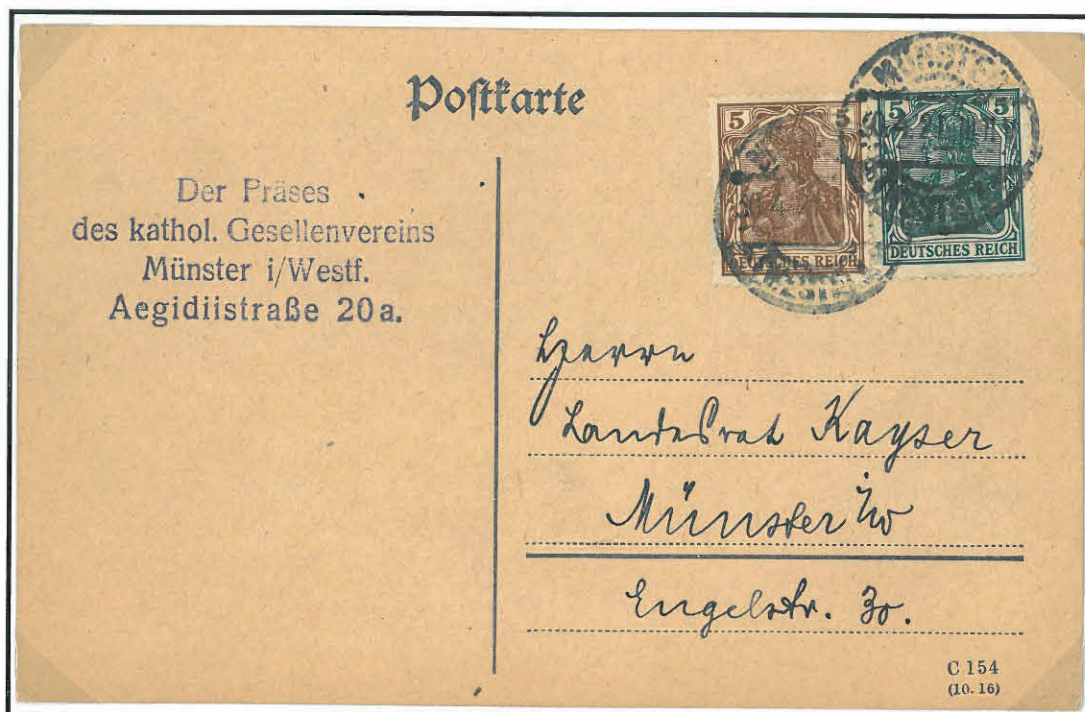 Postkarte
Der Präses
des kathol. Gesellenvereins
Münster i/Westf.
Aegidiistraße 20a.
5 5
DEUTSCHES REICH
5 5
DEUTSCHES REICH
MÜNSTER
Herrn
Landesrat Kayser
Münster i/W
Engelstr. 30.
C 154
(10. 16)